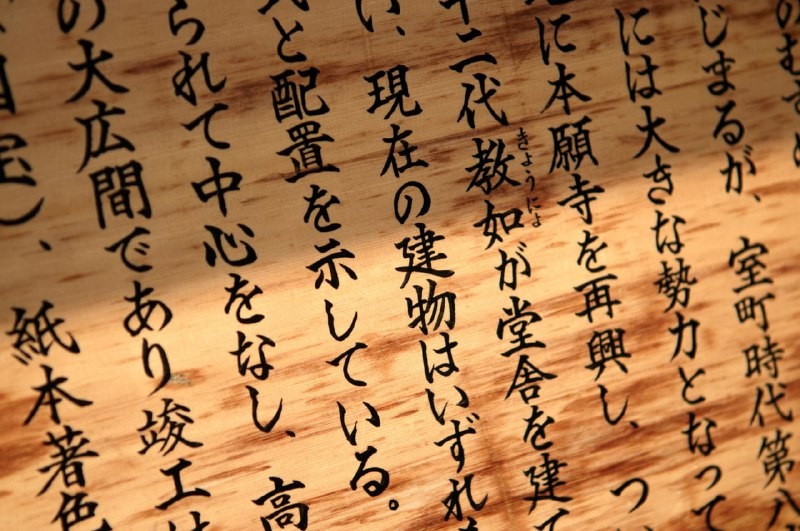 のむす
じまるが、室町時代第八
には大きな勢力となって
に本願寺を再興し、つ
十二代教如が堂舎を建て
きょうにょ
い、現在の建物はいずれ
と配置を示している。
られて中心をなし、高
の大広間であり竣工は
国宝）、紙本著色